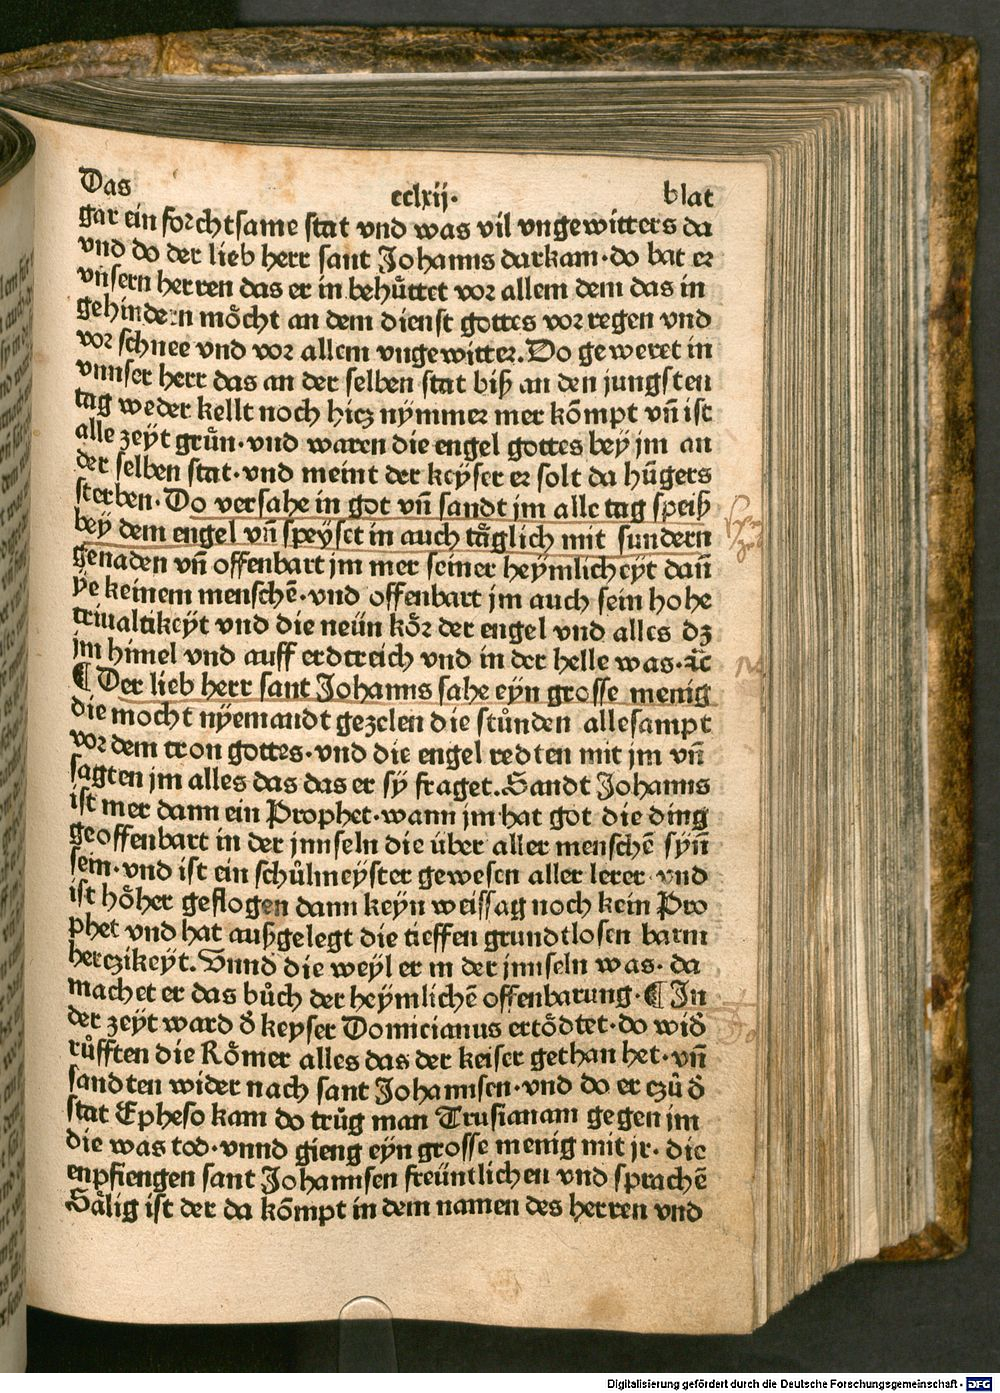 Das cclxij. blat
gar ein forchtsame stat vnd was vil vngewitters da
vnd do der lieb herr sant Johanns darkam·do bat er
vnsern herren das er in behůttet vor allem dem das in
gehindern mo̊cht an dem dienst gottes vor regen vnd
vor schnee vnd vor allem vngewitter. Do geweret in
vnnser herr das an der selben stat biß an den jungsten
tag weder kellt noch hicz nÿmmer mer ko̅mpt vn̅ ist
alle zeÿt grůn·vnd waren die engel gottes beÿ jm an
der selben stat·vnd meint der keÿser er solt da hu̅gers
sterben. Do versahe in got vn̅ sandt jm alle tag speiß
beÿ dem engel vn̅ speÿset in auch ta̎glich mit sundern
genaden vn̅ offenbart jm mer seiner heÿmlicheÿt dan̅
ÿe keinem mensche̅·vnd offenbart jm auch sein hohe
triualtikeÿt vnd die neün ko̊r der engel vnd alles dz
jm himel vnd auff erdtreich vnd in der helle was·ꝛc̅
¶ Der lieb herr sant Johanns sahe eÿn grosse menig
die mocht nÿemandt gezelen die stůnden allesampt
vor dem tron gottes·vnd die engel redten mit jm vn̅
sagten jm alles das das er sÿ fraget. Sandt Johanns
ist mer dann ein Prophet·wann jm hat got die ding
geoffenbart in der jnnseln die über aller mensche̅ sÿn̅
sein·vnd ist ein schůlmeÿster gewesen aller lerer vnd
ist ho̊her geflogen dann keÿn weissag noch kein Pro
phet vnd hat außgelegt die tieffen grundtlosen barm
herczikeÿt. Vnnd die weÿl er in der jnnseln was· da
machet er das bůch der heÿmliche̅ offenbarung·¶ In
der zeÿt ward d̕ keyser Domicianus erto̊dtet·do wid̕
růfften die Ro̊mer alles das der keiser gethan het·vn̅
sandten wider nach sant Johannsen·vnd do er czů d̕
stat Epheso kam do trůg man Trusianam gegen jm
die was tod·vnnd gieng eÿn grosse menig mit jr· die
enpfiengen sant Johannsen freüntlichen vnd sprache̅
Sa̎lig ist der da ko̅mpt in dem namen des herren vnd
Digitalisierung gefördert durch die Deutsche Forschungsgemeinschaft - DFG